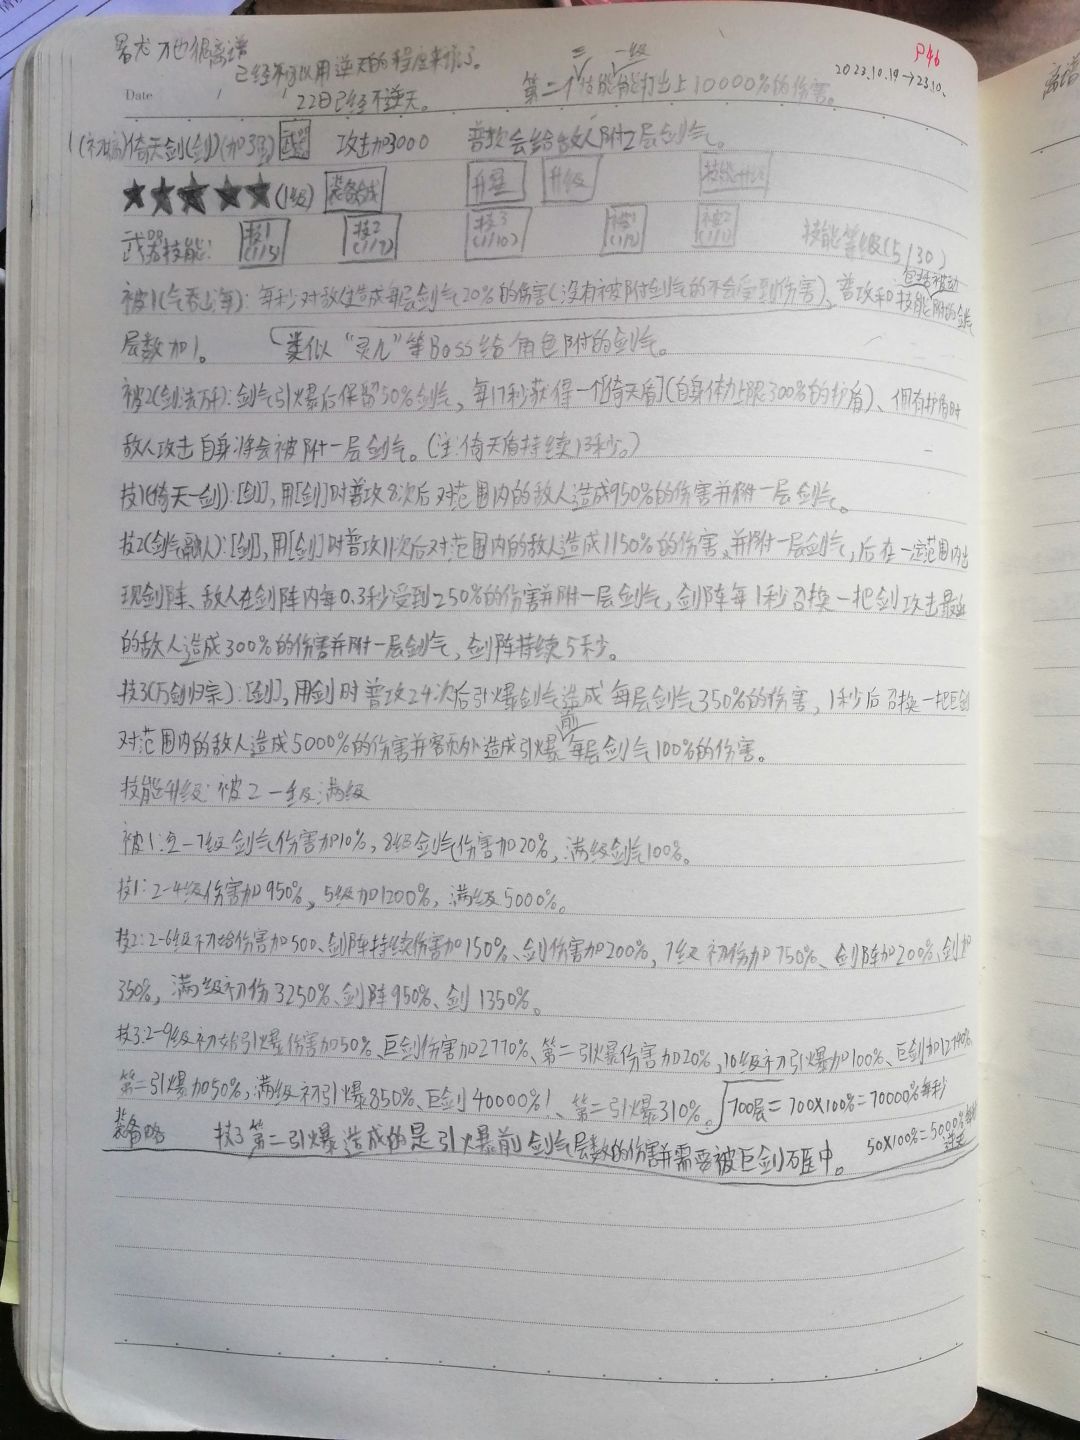 P46
已经不可以用逆天的程度来形了。
22日已经不逆天。
三 一级
第二个技能能打出上10000%的伤害。
2023.10.19→23.10.
Date
1(初稿)倚天剑(剑)(加3星) 武器 攻击加3000 普攻会给敌人附2层剑气。
★★★★★(1级) 装备合成 升星 升级 技能升级
武器技能: 技1(1/5) 技2(1/7) 技3(1/10) 被1 被2(1/1) 技能等级(5/30)
被1(气吞山海):每秒对敌人造成每层剑气20%的伤害(没有被附剑气的不会受到伤害)、普攻和技能附的剑气
包括被动
层数加1。 类似“灵儿”等Boss给角色附的剑气。
被2(剑法万千):剑气引爆后保留50%剑气,每17秒获得一个[倚天盾](自身体力上限300%的护盾)、拥有护盾时
敌人攻击自身将会被附一层剑气。(注:倚天盾持续13秒。)
技1(倚天一剑):[剑],用[剑]时普攻8次后对范围内的敌人造成950%的伤害并附一层剑气。
技2(剑气融入):[剑],用[剑]时普攻11次后对范围内的敌人造成1150%的伤害,并附一层剑气,后在一定范围内出
现剑阵、敌人在剑阵内每0.3秒受到250%的伤害并附一层剑气,剑阵每1秒召换一把剑攻击最近
的敌人造成300%的伤害并附一层剑气,剑阵持续5秒。
技3(万剑归宗):[剑],用剑时普攻24次后引爆剑气造成每层剑气350%的伤害,1秒后召换一把巨剑
对范围内的敌人造成5000%的伤害并额外造成引爆前每层剑气100%的伤害。
技能升级:被2一级满级
被1:2-7级剑气伤害加10%,8级剑气伤害加20%,满级剑气100%。
技1:2-4级伤害加950%,5级加1200%,满级5000%。
技2:2-6级初始伤害加500、剑阵持续伤害加150%、剑伤害加200%,7级初伤加750%、剑阵加200%、剑加
350%,满级初伤3250%、剑阵950%、剑1350%。
技3:2-9级初始引爆伤害加50%、巨剑伤害加2770%、第二引爆伤害加20%,10级初引爆加100%、巨剑加12740%、
第二引爆加50%,满级初引爆850%、巨剑40000%!、第二引爆310%。 700层=700×100%=70000%每秒
50×100%=5000%每秒
逆天
装备略 技3第二引爆造成的是引爆前剑气层数的伤害并需要被巨剑砸中。